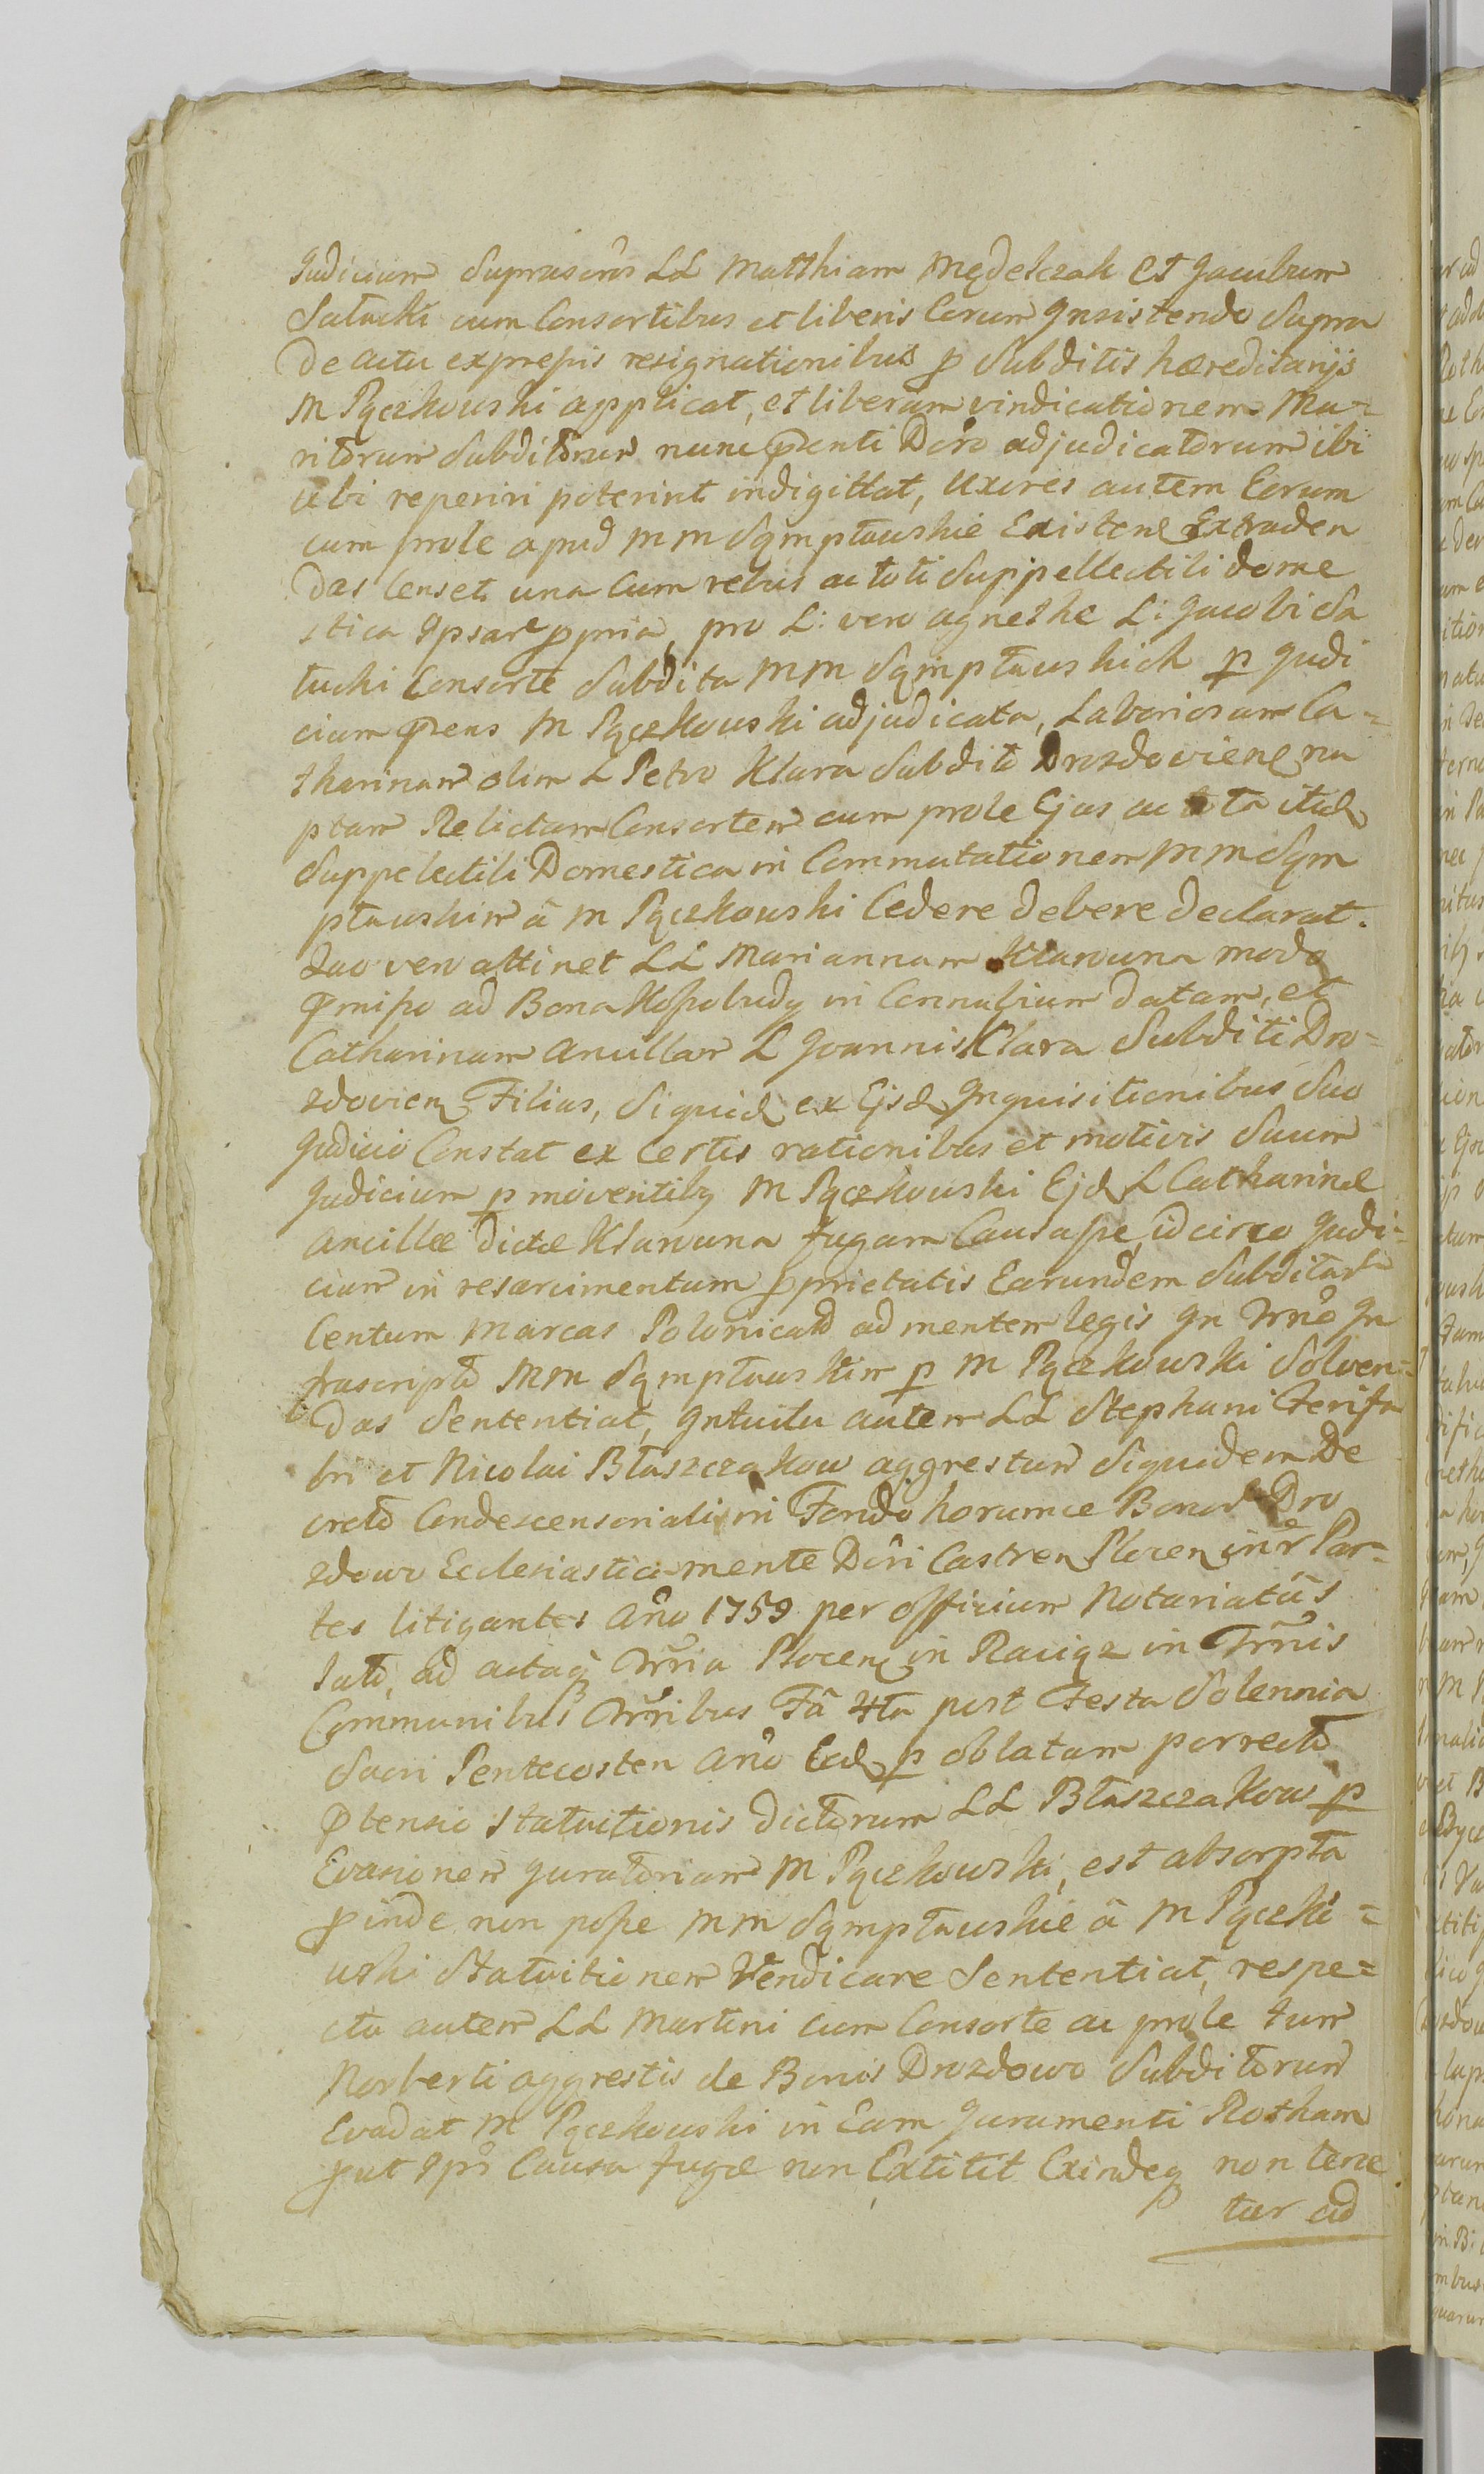 Judicium suprascros LL Matthiam Mędelczak et Jacobum
Satucki cum Consortibus et liberis Eorum Insistendo supra
de actu expressis resignationibus p subditis hæreditarijs
M Pączkowski applicat, et liberam vindicationem Ma=
ritorum subditorum nunc pnti Dcro adjudicatorum ibi
ubi reperiri poterint indigittat, Uxores autem Eorum
cum prole apud MM Sęmpławskie Existen Extraden
das Censet una cum rebus ac toti suppellectili dome
stica Ipsar ppria, pro L: vero Agnethe L: Jacobi Sa
tucki Consorte subdita MM Sęmpławskich p Judi
cium pens M Pączkowski adjudicata, Laboriosam Ca=
tharinam olim L Petro Klara subdito Drozdovien nu
ptam Relictam Consortem cum prole Ejus ac tota itid
suppelectili Domestica in Commutationem MM Sęm
pławskim â M Pączkowski Cedere debere declarat.
Quo vero attinet LL Mariannam Klarowna modo
pmisso ad Bona Kossobudy in Connubium datam, et
Catharinam Ancillam L Joannis Klara subditi Dro=
zdovien Filias, siquid ex Ejsd Inquisitionibus suo
Judicio Constat ex certis rationibus et motivis suum
Judicium p moventibq M Pączkowski Ejd L Catharinæ
Ancillæ dictæ Klarowna fugam Causasse, idcirco Judi=
cium in resarcimentum pprietatis Earundem subditar
Centum Marcas Polonicald ad mentem legis In Trno In
frascripto MM Sęmpławskim p M Pączkowski solven=
das sententiat, Intuitu autem LL Stephani Ferifa
bri et Nicolai Błaszczakow aggrestium siquidem De
creto Condescensoriali in Fondo horumce Bonor Dro
zdowo Ecclesiastica mente Dcri Castren Plocen inr Par=
tes litigantes Año 1759 per officium Notariatûs
lato, ad actaq Trria Plocen in Raciąz in Trnis
Communibus Trribus Fâ 4ta post Festa solennia
Sacri Pentecosten Año Eod p oblatam porrecto
ptensio statuitionis dictorum LL Błaszczakow p
Evasionem Juratoriam M Pączkowski, est absorpta
pinde non posse MM Sęmpławskie â M Pączko=
wski statuitionem Vendicare sententiat, respe=
ctu autem LL Martini cum Consorte ac prole tum
Norberti aggrestis de Bonis Drozdowo subditorum
Evadat M Pączkowski in Eam Juramenti Rotham
put Ips Causa fugæ non Extitit Exindeq non tene
tur ad